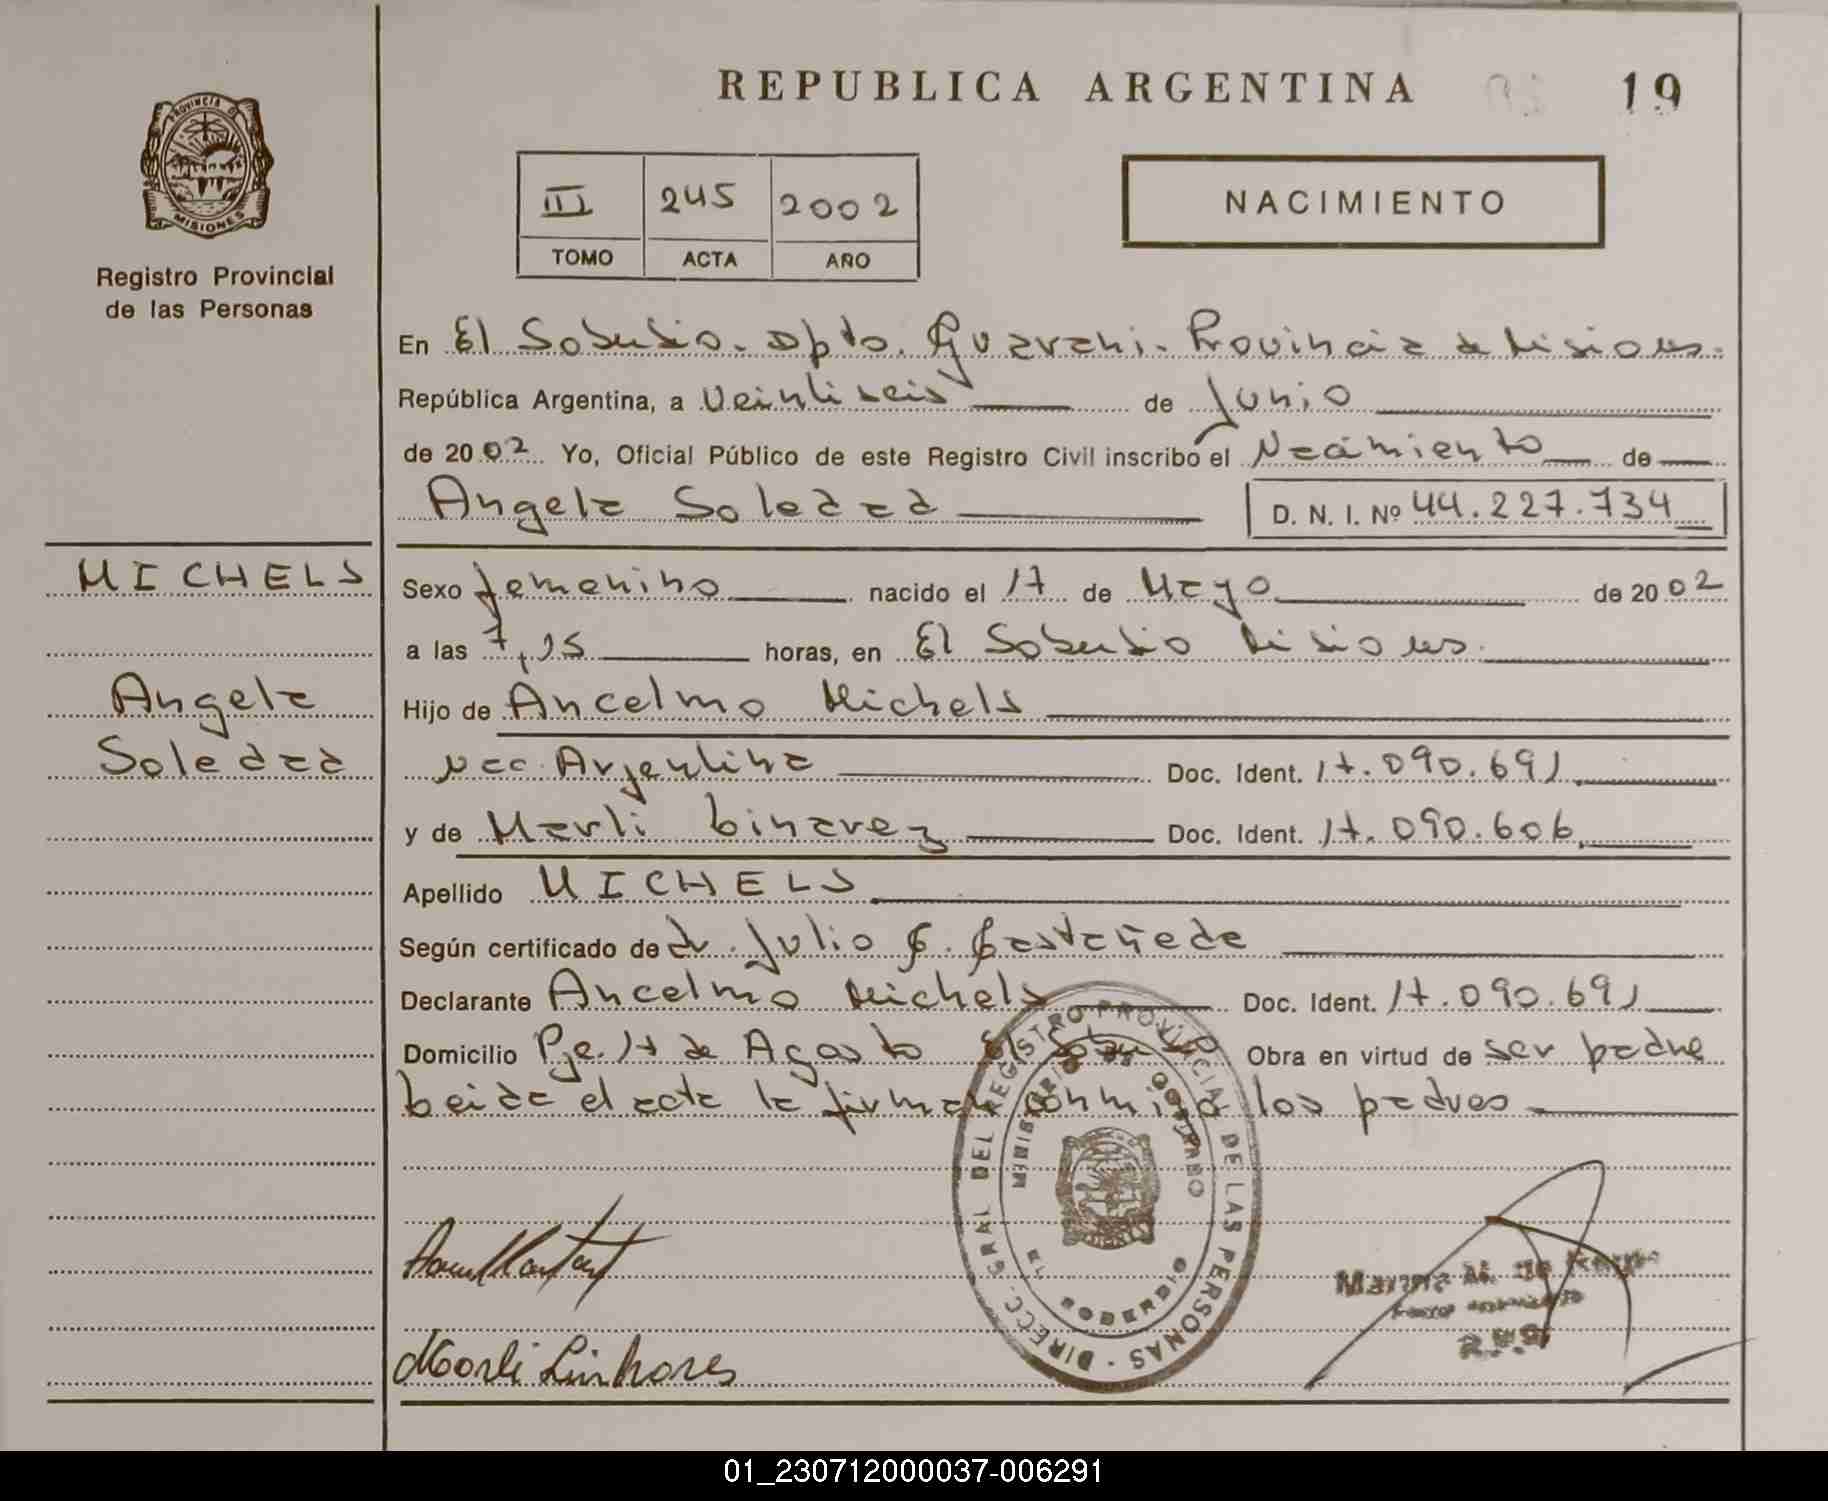 REPUBLICA ARGENTINA
19
PROVINCIA D
MISIONES
Registro Provincial
de las Personas
III 245 2002
TOMO ACTA AÑO
NACIMIENTO
En El Soberbio. Dpto. Guarani. Provincia de Misiones.
República Argentina, a Veintiseis de Junio
de 2002 Yo, Oficial Público de este Registro Civil inscribo el Nacimiento de
Angela Soledad D. N. I. Nº 44.227.734
MICHELS
Angela
Soledad
Sexo femenino nacido el 17 de Mayo de 2002
a las 7,15 horas, en El Soberbio Misiones.
Hijo de Ancelmo Michels
Nac. Argentina Doc. Ident. 17.090.691
y de Marli Linarez Doc. Ident. 17.090.606
Apellido MICHELS
Según certificado de dr. Julio C. Castañeda
Declarante Ancelmo Michels Doc. Ident. 17.090.691
Domicilio Pje. 17 de Agosto El Soberbio Obra en virtud de ser padre
Leida el acta la firman conmigo los padres
DIRECC. GRAL DEL REGISTRO PROVINCIAL DE LAS PERSONAS
MINISTERIO DE GOBIERNO
Marli Linhores
01_230712000037-006291